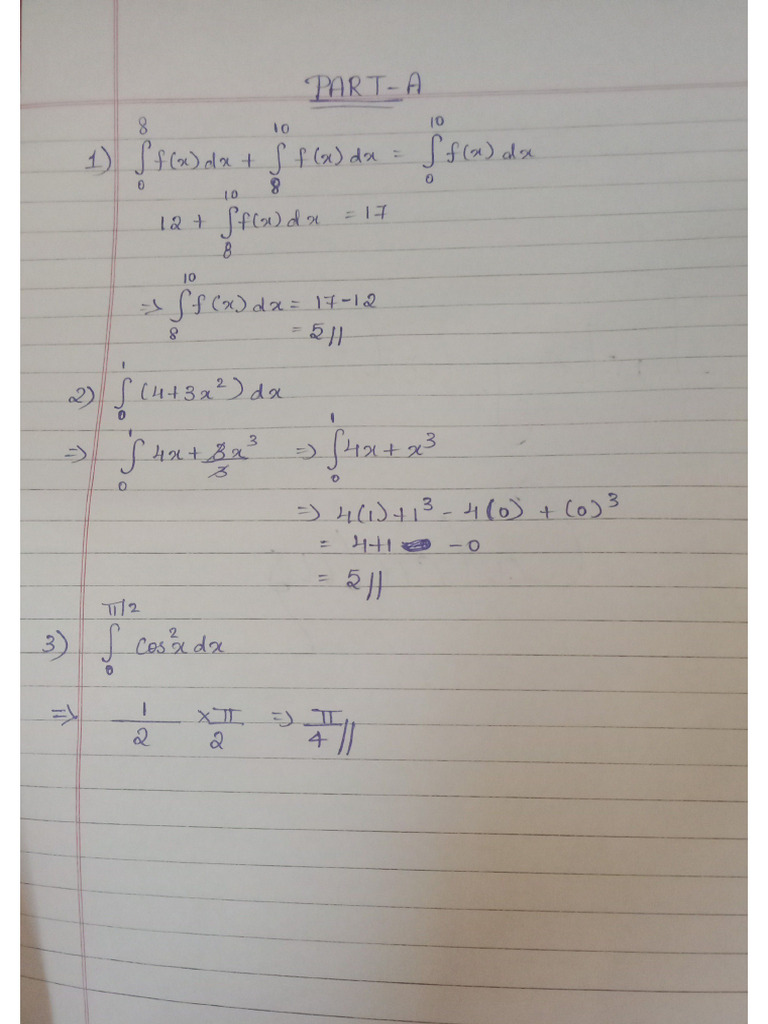 PART-A
1) ∫₀⁸ f(x) dx + ∫₈¹⁰ f(x) dx = ∫₀¹⁰ f(x) dx
12 + ∫₈¹⁰ f(x) dx = 17
⇒ ∫₈¹⁰ f(x) dx = 17-12
= 5//
2) ∫₀¹ (4+3x²) dx
⇒ ∫₀¹ 4x + 3x³/3 ⇒ ∫₀¹ 4x + x³
⇒ 4(1)+1³ - 4(0) + (0)³
= 4+1 -0
= 5//
3) ∫₀^(π/2) cos²x dx
⇒ 1/2 × π/2 ⇒ π/4//